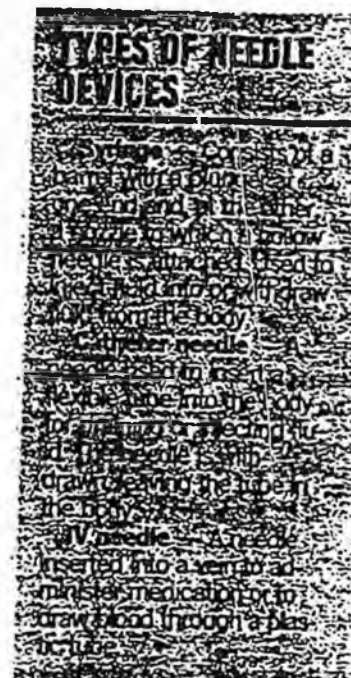 TYPES OF NEEDLE
DEVICES
Syringe — Consists of a
barrel with a plunger
one end and at the other
a nozzle to which a hollow
needle is attached. Used to
inject fluid into or withdraw
fluid from the body.
Catheter needle — A
needle used to insert a
flexible tube into the body
for injecting flu-
id. The needle is with-
drawn, leaving the tube in
the body.
IV needle — A needle
inserted into a vein to ad-
minister medication or to
draw blood through a plas-
tic tube.